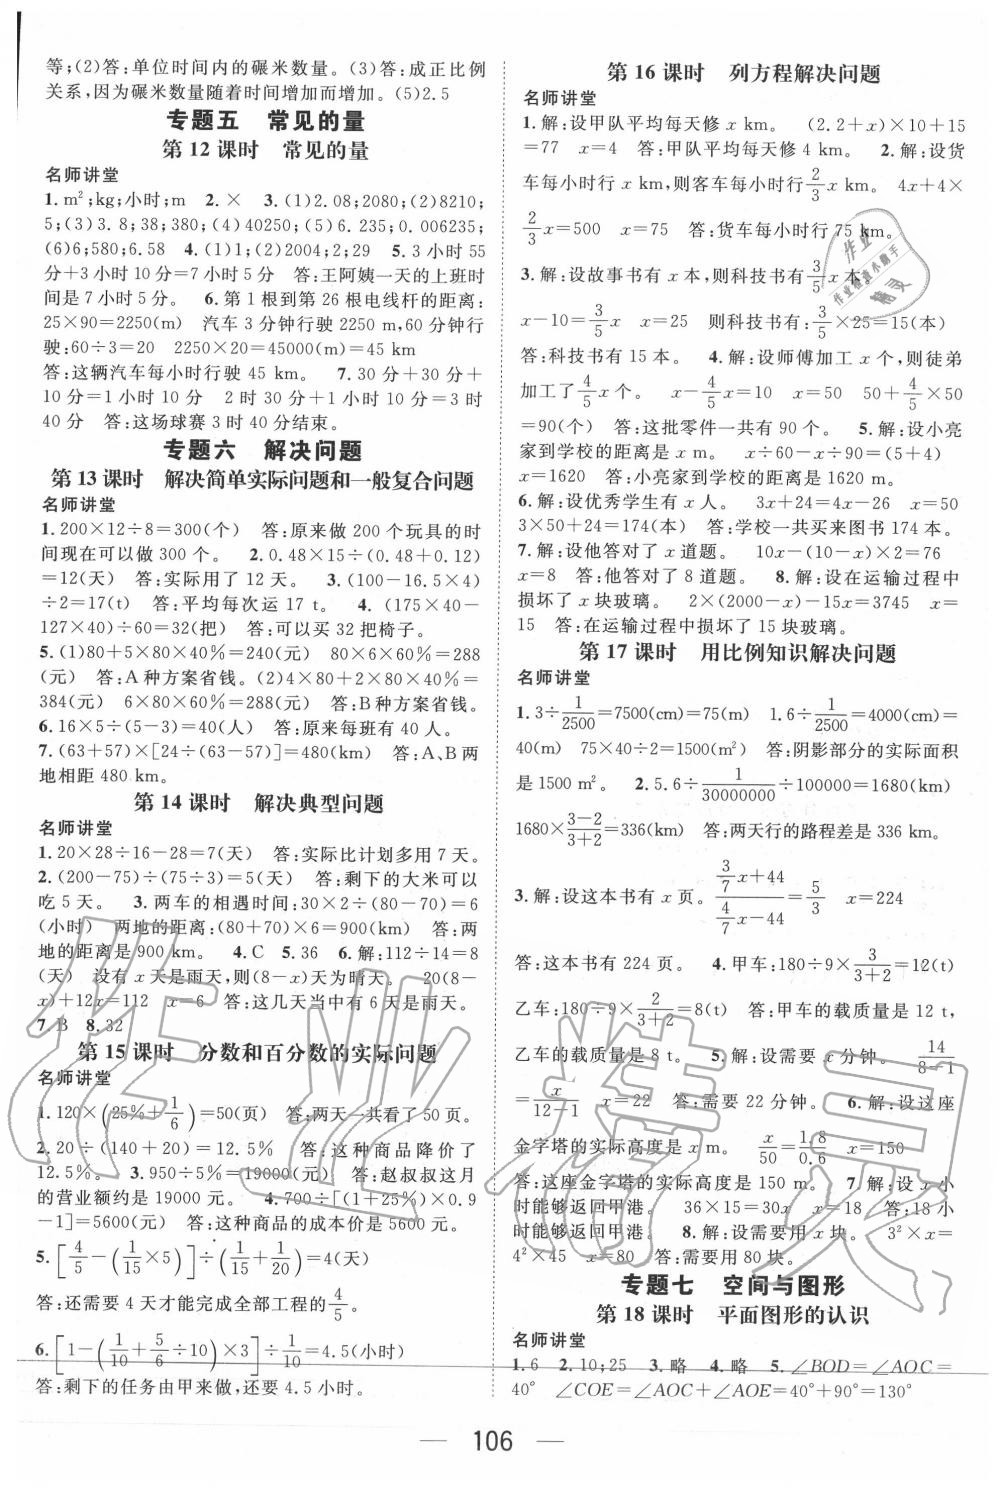 等;(2)答:单位时间内的碾米数量。(3)答:成正比例
关系,因为碾米数量随着时间增加而增加。(5)2.5
专题五 常见的量
第12课时 常见的量
名师讲堂
1.m²;kg;小时;m 2.× 3.(1)2.08;2080;(2)8210;
5;(3)3.8;38;380;(4)40250;(5)6.235;0.006235;
(6)6;580;6.58 4.(1)1;(2)2004;2;29 5.3小时55
分+3小时10分=7小时5分 答:王阿姨一天的上班时
间是7小时5分。 6.第1根到第26根电线杆的距离:
25×90=2250(m) 汽车3分钟行驶2250 m,60分钟行
驶:60÷3=20 2250×20=45000(m)=45 km
答:这辆汽车每小时行驶45 km。 7.30分+30分+10
分=1小时10分 2时30分+1小时10分=3时
40分 答:这场球赛3时40分结束。
专题六 解决问题
第13课时 解决简单实际问题和一般复合问题
名师讲堂
1.200×12÷8=300(个) 答:原来做200个玩具的时
间现在可以做300个。 2.0.48×15÷(0.48+0.12)
=12(天) 答:实际用了12天。 3.(100-16.5×4)
÷2=17(t) 答:平均每次运17 t。 4.(175×40-
127×40)÷60=32(把) 答:可以买32把椅子。
5.(1)80+5×80×40%=240(元) 80×6×60%=288
(元) 答:A种方案省钱。(2)4×80+2×80×40%=
384(元) 6×80×60%=288(元) 答:B种方案省钱。
6.16×5÷(5-3)=40(人) 答:原来每班有40人。
7.(63+57)×[24÷(63-57)]=480(km) 答:A、B两
地相距480 km。
第14课时 解决典型问题
名师讲堂
1.20×28÷16-28=7(天) 答:实际比计划多用7天。
2.(200-75)÷(75÷3)=5(天) 答:剩下的大米可以
吃5天。 3.两车的相遇时间:30×2÷(80-70)=6
(小时) 两地的距离:(80+70)×6=900(km) 答:两
地的距离是900 km。 4.C 5.36 6.解:112÷14=8
(天) 设有x天是雨天,则(8-x)天为晴天。 20(8-
x)+12x=112 x=6 答:这几天当中有6天是雨天。
7.B 8.32
第15课时 分数和百分数的实际问题
名师讲堂
1.120×(25%+1/6)=50(页) 答:两天一共看了50页。
2.20÷(140+20)=12.5% 答:这种商品降价了
12.5%。 3.950÷5%=19000(元) 答:赵叔叔这月
的营业额约是19000元。 4.700÷[(1+25%)×0.9
-1]=5600(元) 答:这种商品的成本价是5600元。
5.[4/5-(1/15×5)]÷(1/15+1/20)=4(天)
答:还需要4天才能完成全部工程的4/5。
6.[1-(1/10+5/6÷10)×3]÷1/10=4.5(小时)
答:剩下的任务由甲来做,还要4.5小时。
第16课时 列方程解决问题
名师讲堂
1.解:设甲队平均每天修x km。 (2.2+x)×10+15
=77 x=4 答:甲队平均每天修4 km。 2.解:设货
车每小时行x km,则客车每小时行2/3x km。 4x+4×
2/3x=500 x=75 答:货车每小时行75 km。
3.解:设故事书有x本,则科技书有3/5x本。
x-10=3/5x x=25 则科技书有:3/5×25=15(本)
答:科技书有15本。 4.解:设师傅加工x个,则徒弟
加工了4/5x个。 x-4/5x=10 x=50 50+4/5×50
=90(个) 答:这批零件一共有90个。 5.解:设小亮
家到学校的距离是x m。 x÷60-x÷90=(5+4)
x=1620 答:小亮家到学校的距离是1620 m。
6.解:设优秀学生有x人。 3x+24=4x-26 x=50
3×50+24=174(本) 答:学校一共买来图书174本。
7.解:设他答对了x道题。 10x-(10-x)×2=76
x=8 答:他答对了8道题。 8.解:设在运输过程中
损坏了x块玻璃。 2×(2000-x)-15x=3745 x=
15 答:在运输过程中损坏了15块玻璃。
第17课时 用比例知识解决问题
名师讲堂
1.3÷1/2500=7500(cm)=75(m) 1.6÷1/2500=4000(cm)=
40(m) 75×40÷2=1500(m²) 答:阴影部分的实际面积
是1500 m²。 2.5.6÷1/30000000÷100000=1680(km)
1680×(3-2)/(3+2)=336(km) 答:两天行的路程差是336 km。
3.解:设这本书有x页。 (3/7x+44)/(4/7x-44)=5/3 x=224
答:这本书有224页。 4.甲车:180÷9×3/(3+2)=12(t)
乙车:180÷9×2/(3+2)=8(t) 答:甲车的载质量是12 t,
乙车的载质量是8 t。 5.解:设需要x分钟。 14/(8-1)
=x/(12-1) x=22 答:需要22分钟。 6.解:设这座
金字塔的实际高度是x m。 x/50=1.8/0.6 x=150
答:这座金字塔的实际高度是150 m。 7.解:设x小
时能够返回甲港。 36×15=30x x=18 答:18小
时能够返回甲港。 8.解:设需要用x块。 3²×x=
4²×45 x=80 答:需要用80块。
专题七 空间与图形
第18课时 平面图形的认识
名师讲堂
1.6 2.10;25 3.略 4.略 5.∠BOD=∠AOC=
40° ∠COE=∠AOC+∠AOE=40°+90°=130°
106
作业精灵
作业
作业检查小助手
精灵